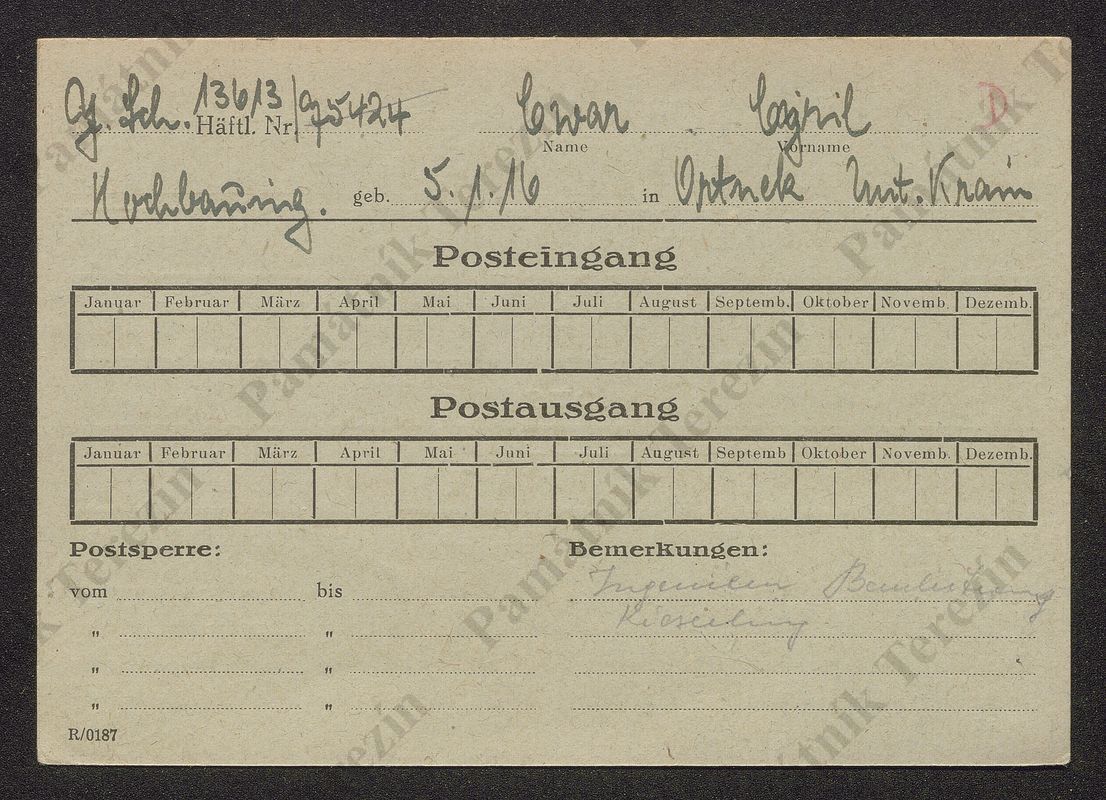 Sch. 13613/75424 Cwar Cyril D
Häftl. Nr. Name Vorname
Hochbauing. geb. 5.1.16 in Ortnek Unt. Krain
Posteingang
Januar Februar März April Mai Juni Juli August Septemb. Oktober Novemb. Dezemb.
Postausgang
Januar Februar März April Mai Juni Juli August Septemb Oktober Novemb. Dezemb.
Postsperre: Bemerkungen:
vom bis Ingenieur Bauleitung
" "
" "
" "
R/0187
Památník Terezín